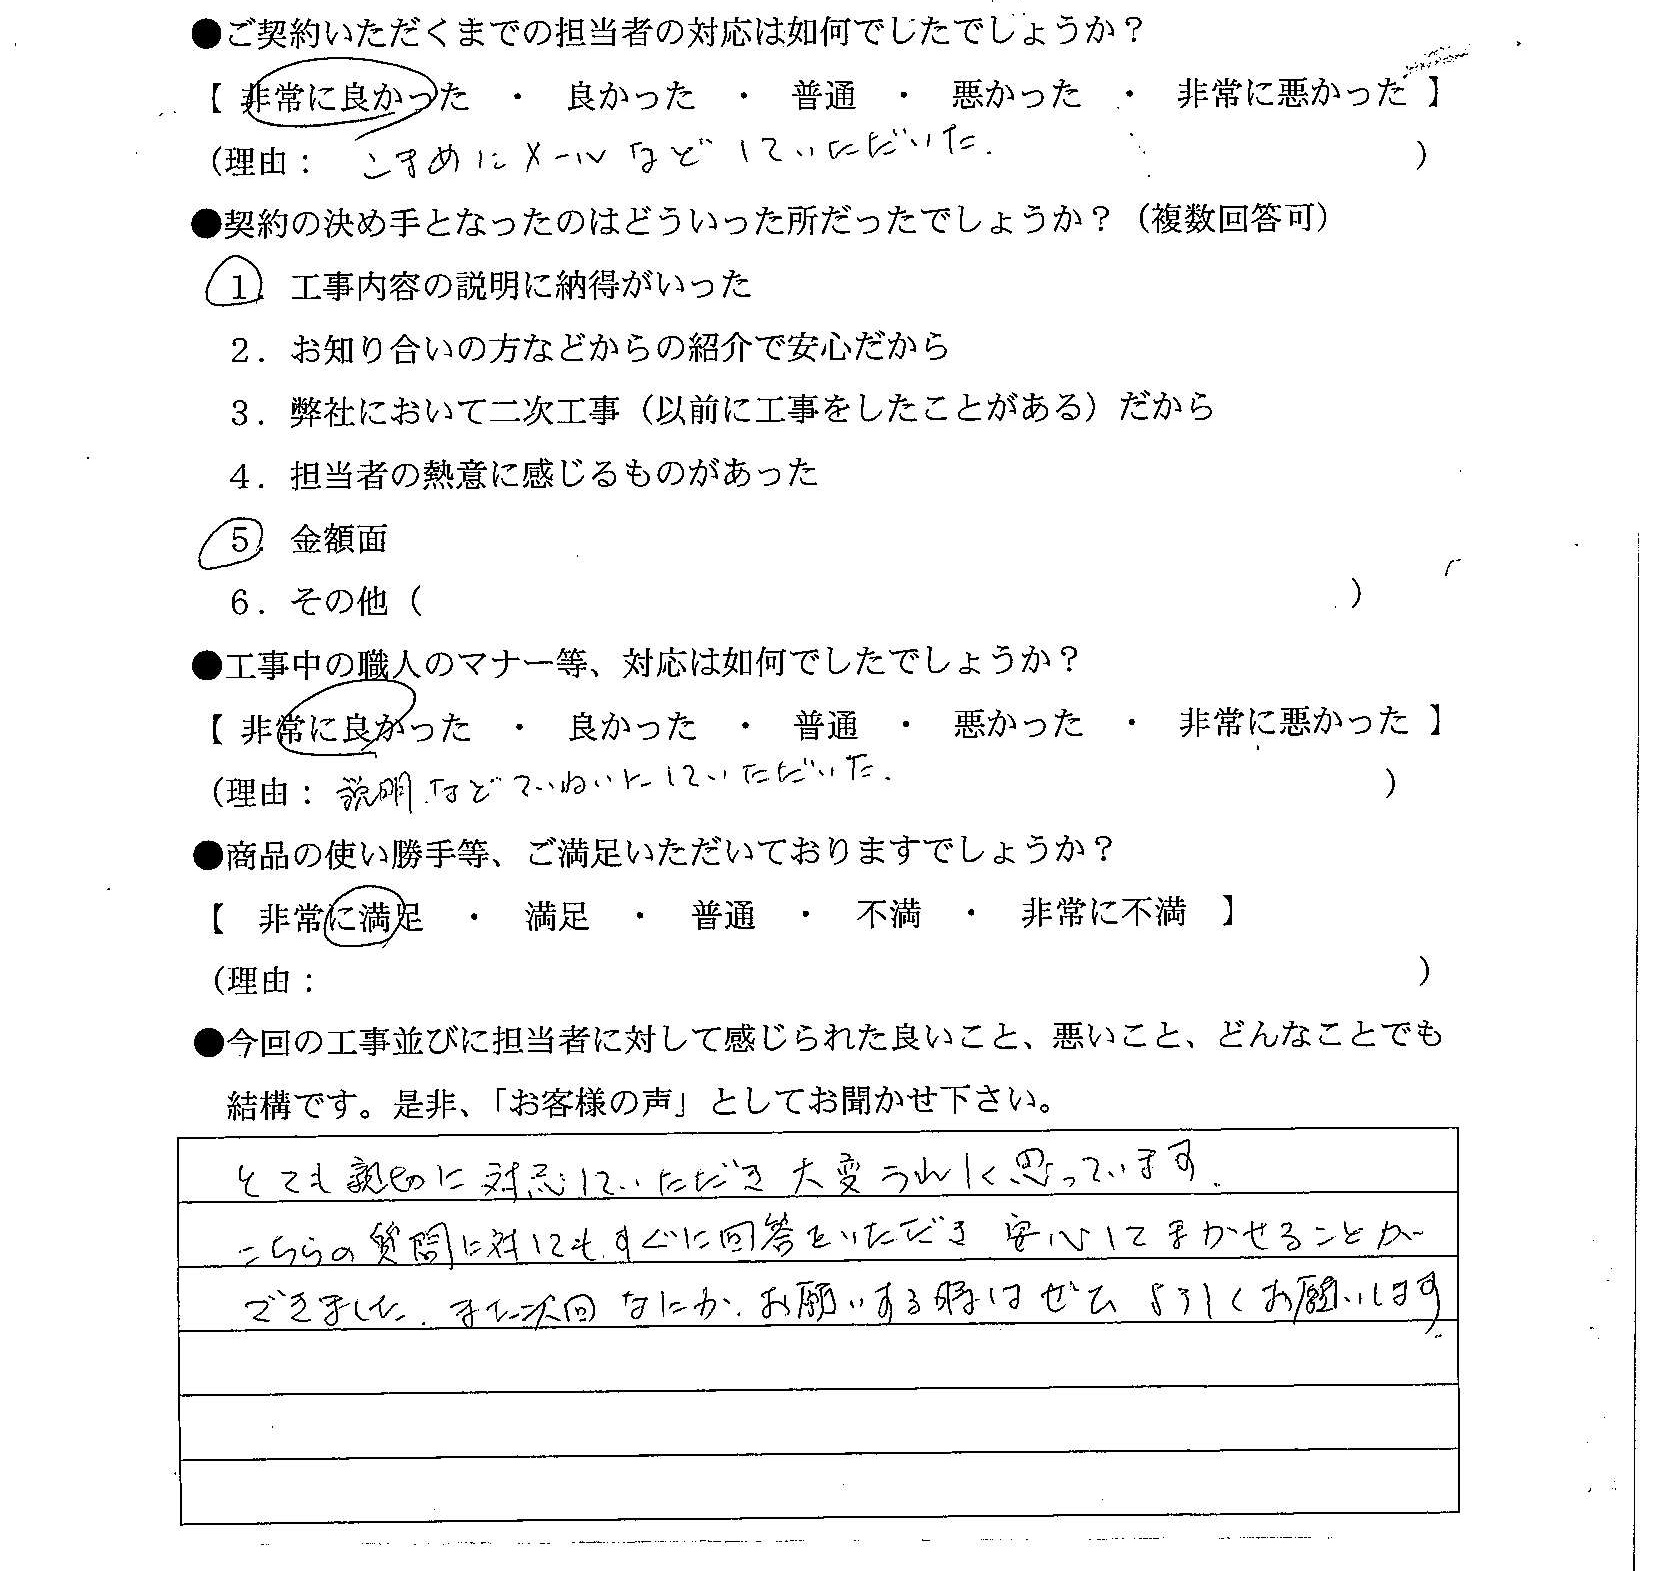 ●ご契約いただくまでの担当者の対応は如何でしたでしょうか？
【 非常に良かった ・ 良かった ・ 普通 ・ 悪かった ・ 非常に悪かった 】
（理由： こまめにメールなどしていただいた. ）
●契約の決め手となったのはどういった所だったでしょうか？（複数回答可）
1. 工事内容の説明に納得がいった
2. お知り合いの方などからの紹介で安心だから
3. 弊社において二次工事（以前に工事をしたことがある）だから
4. 担当者の熱意に感じるものがあった
5. 金額面
6. その他（ ）
●工事中の職人のマナー等、対応は如何でしたでしょうか？
【 非常に良かった ・ 良かった ・ 普通 ・ 悪かった ・ 非常に悪かった 】
（理由： 説明などていねいにしていただいた. ）
●商品の使い勝手等、ご満足いただいておりますでしょうか？
【 非常に満足 ・ 満足 ・ 普通 ・ 不満 ・ 非常に不満 】
（理由： ）
●今回の工事並びに担当者に対して感じられた良いこと、悪いこと、どんなことでも
結構です。是非、「お客様の声」としてお聞かせ下さい。
とても親切に対応していただき 大変うれしく思っています.
こちらの質問に対しても すぐに回答をいただき 安心してまかせることが
できました. また次回 なにか お願いする時は ぜひ よろしくお願いします